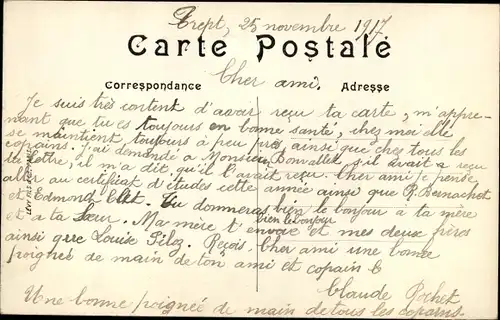 Trept, 25 novembre 1917
Carte Postale
Cher ami.
Correspondance Adresse
Je suis très content d'avoir reçu ta carte, m'appre-
nant que tu es toujours en bonne santé, chez moi elle
se maintient toujours à peu près, ainsi que chez tous les
copains. J'ai demandé à Monsieur Bonvallet s'il avait reçu
ta lettre, il m'a dit qu'il l'avait reçu. Cher ami je pense
aller au certificat d'études cette année ainsi que R. Bernachot
et Edmond Clet. Tu donneras bien le bonjour à ta mère
et à ta Sœur. Ma mère t'envoie bien le bonjour et mes deux frères
ainsi que Louise Pilez. Reçois Cher ami une bonne
poignée de main de ton ami et copain C
Claude Pochet
Une bonne poignée de main de tous les copains